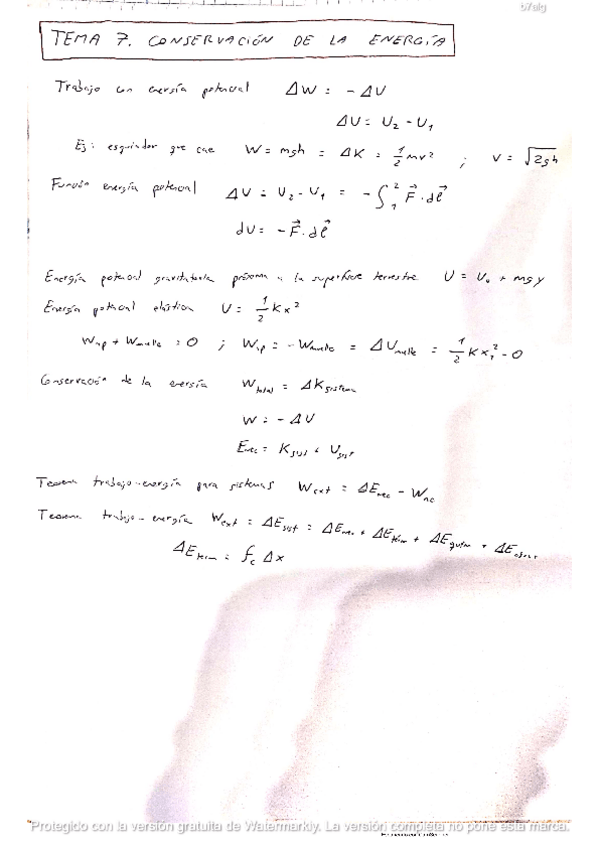 b7elg
TEMA 7. CONSERVACIÓN DE LA ENERGÍA
Trabajo con energía potencial ΔW = -ΔU
ΔU = U₂ - U₁
Ej: esquiador que cae W = mgh = ΔK = 1/2 mv² ; v = √2gh
Función energía potencial ΔU = U₂ - U₁ = -∫₁² F⃗·dℓ⃗
dU = -F⃗·dℓ⃗
Energía potencial gravitatoria próxima a la superficie terrestre U = U₀ + mgy
Energía potencial elástica U = 1/2 Kx²
W + Wmuelle = 0 ; W = -Wmuelle = ΔUmuelle = 1/2 Kx₁² - 0
Conservación de la energía Wtotal = ΔKsistema
W = -ΔU
Emec = Ksist + Usist
Teorema trabajo-energía para sistemas Wext = ΔEmec - Wnc
Teorema trabajo-energía Wext = ΔEsist = ΔEmec + ΔEtérm + ΔEquím + ΔE
ΔEterm = fc Δx
Protegido con la versión gratuita de Watermarkly. La versión completa no pone esta marca.